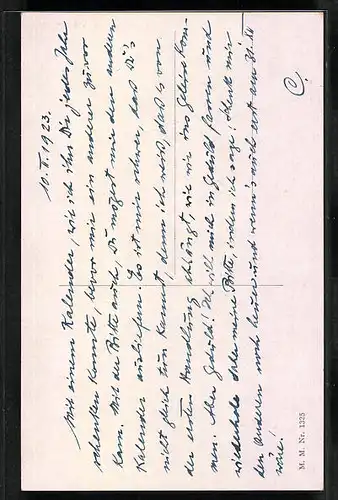 10. II. 1923.
Mit einem Kalender, wie ich ihn Dir jedes Jahr
schenken konnte, bevor mir ein anderer zuvor
kam. Mit der Bitte auch, Du mögest mir den anderen
Kalender ausliefern. Es ist mir schwer, daß Du's
nicht gleich tun kannst, denn ich weiß, daß es von
der ersten Handlung abhängt, wie wir ins Gleis kom-
men. Aber Geduld! Ich will mich in Geduld fassen und
wiederhole daher meine Bitte, indem ich sage: Schenk mir
den anderen noch heuer und wenn's auch erst am 31.
wäre!
C.
M. M. Nr. 1325